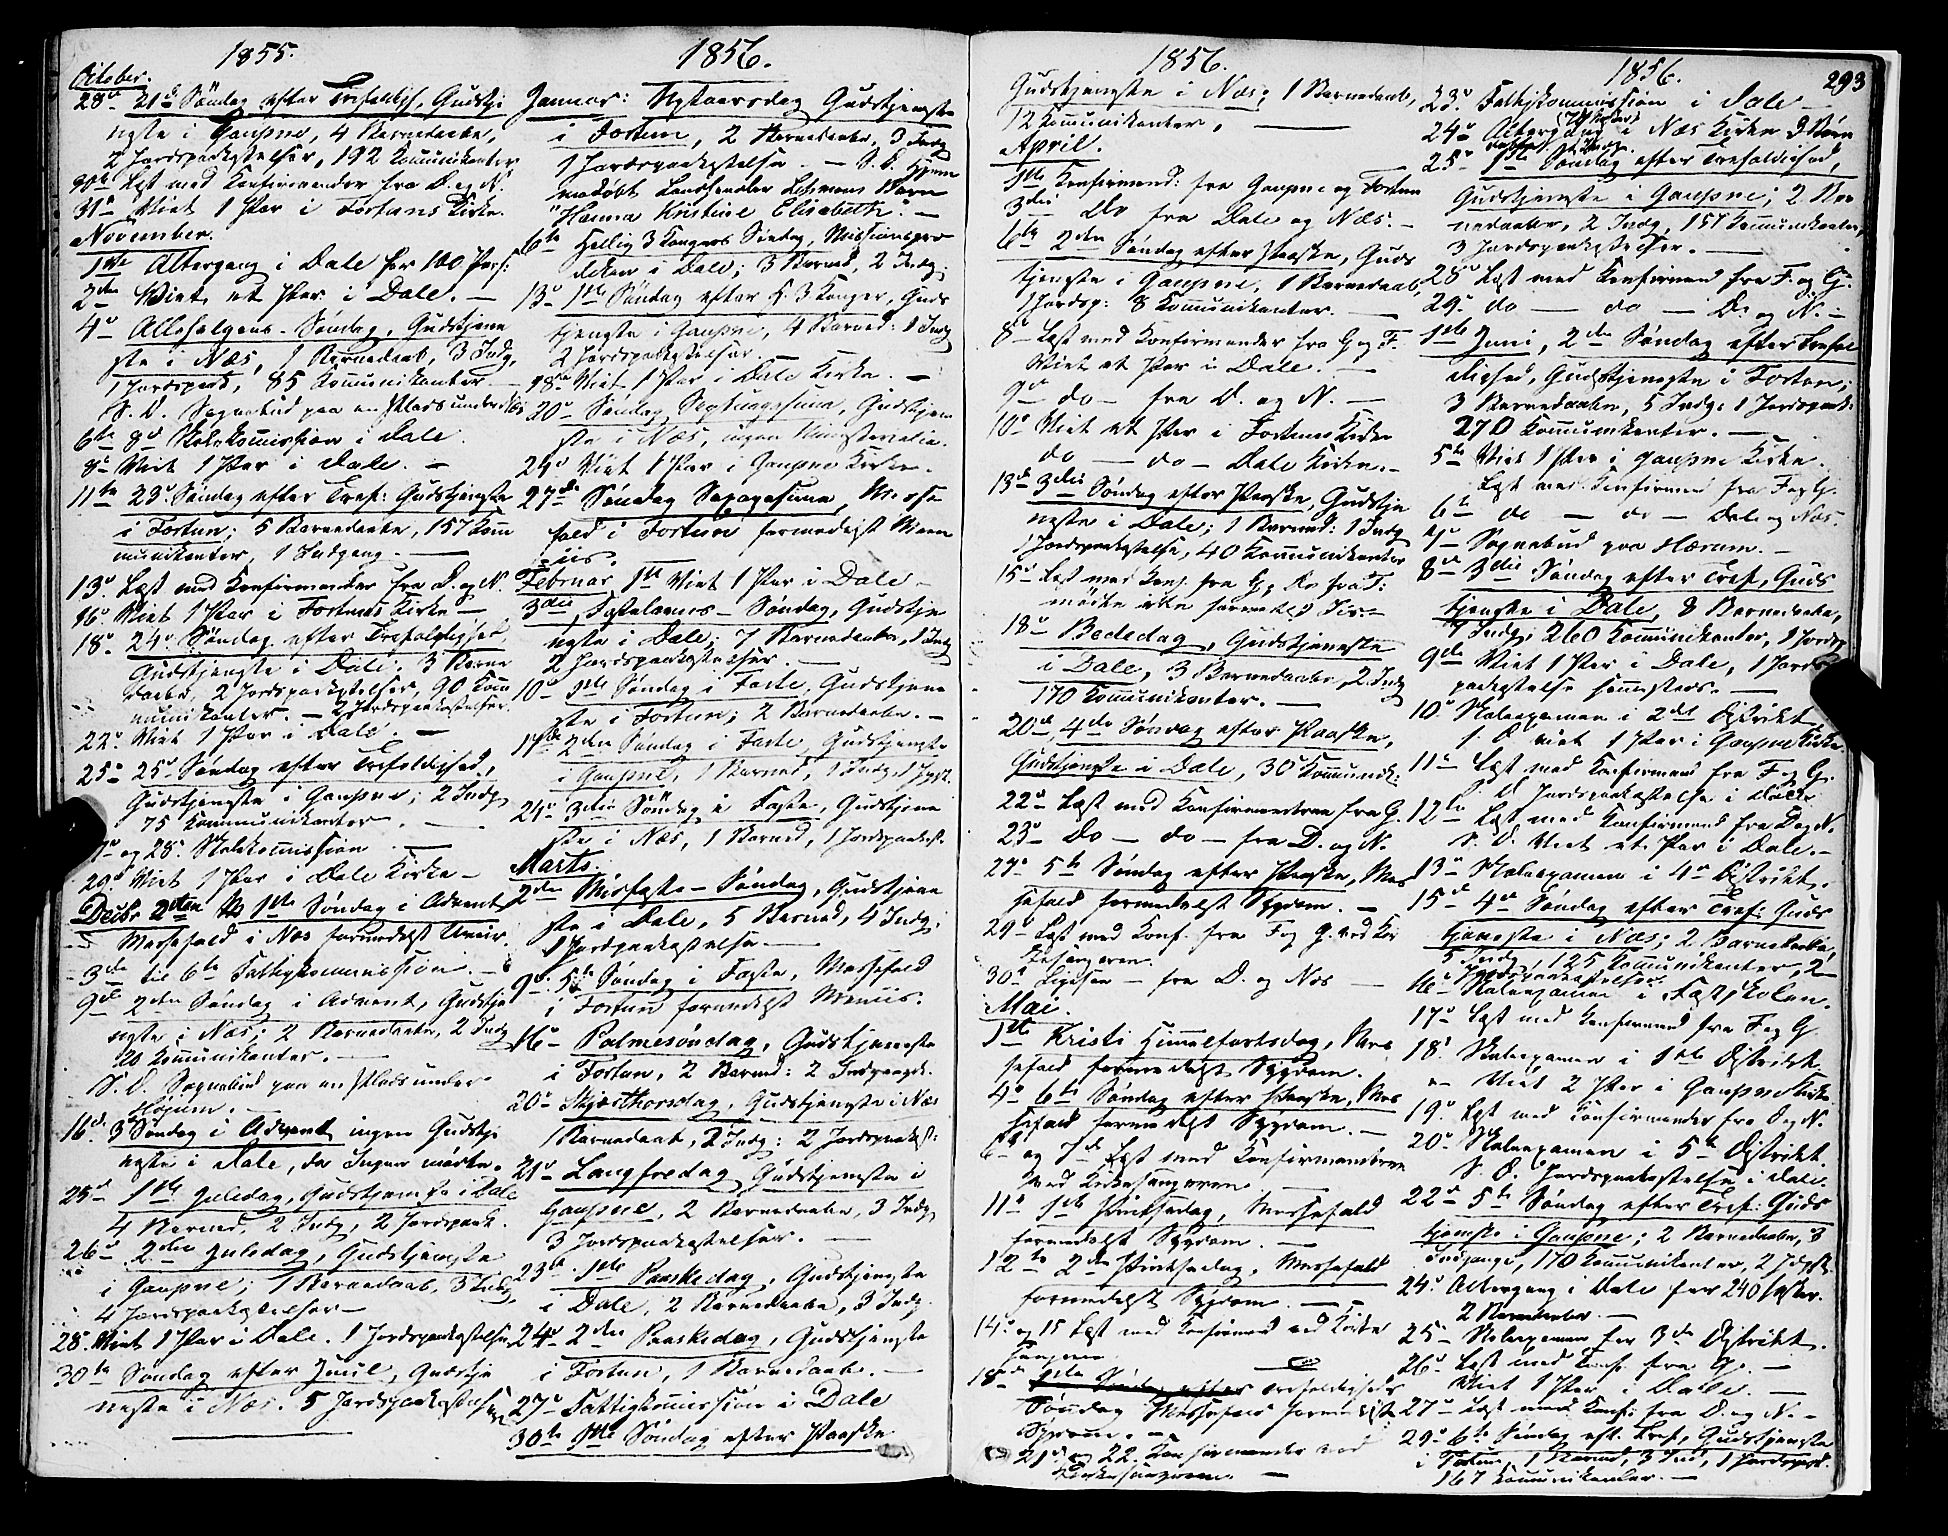 1855.
October.
28de 21de Søndag efter Trefoldigh, Gudstje
neste i Gaupne, 4 Barnedaabe,
2 Jordspaakastelser, 192 Kommunikanter
30te Læst med Konfirmander fra D. og N.
31te Viet 1 Par i Fortuns Kirke.
November.
1ste Altergang i Dale for 100 Pers:
2den Viet et Par i Dale. —
4de Allehelgens-Søndag, Gudstjene
ste i Næs, 1 Barnedaab, 3 Indg,
1 Jordspaak, 85 Kommunikanter —
S. D. Sognebud paa en Plads under
6te 8de Skolekomission i Dale.
8de Viet 1 Par i Dale. —
11te 23de Søndag efter Tref: Gudstjeneste
i Fortun; 5 Barnedaabe, 157 Kom
munikanter, 1 Indgang. —
13de Læst med Konfirmander fra D. og N.
16de Viet 1 Par i Fortuns Kirke —
18de 24de Søndag efter Trefoldighed,
Gudstjeneste i Dale. 3 Barne
daabe, 2 Jordspaakastelser, 90 Kom
munikanter. — 2 Jordspaakastelser.
22de Viet 1 Par i Dale. —
25de 25de Søndag efter Trefoldighed,
Gudstjeneste i Gaupne; 2 Indg
75 Kommunikanter. —
og 28de Skolekomission —
29de Viet 1 Par i Dale Kirke —
Decbr 2den 1ste Søndag i Advent
Messefald i Næs formedelst Uveir.
3die til 6te Fattigkommission. —
9de 2den Søndag i Advent, Gudstje
neste i Næs; 2 Barnedaabe, 2 Indg
20 Kommunikanter. —
S. D. Sognebud paa en Plads under
16de 3die Søndag i Advent ingen Gudstje
neste i Dale, da Ingen mødte.
25de 1ste Juledag, Gudstjeneste i Dale
4 Barned, 2 Indg, 2 Jordspaak.
26de 2den Juledag, Gudstjeneste
i Gaupne; 1 Barnedaab, 3 Indg,
4 Jordspaakastelser —
28de Viet 1 Par i Dale. 1 Jordspaakastelse
30te Søndag efter Juul, Gudstje
neste i Næs. 5 Jordspaakastelser
1856.
Januar: Nytaarsdag Gudstjeneste
i Fortun, 2 Barnedaabe, 3 Indg
1 Jordspaakastelse. — S. D. Hjem
medøbt Landhandler Lehmans Barn
"Hanna Kristine Elisabeth". —
6te Hellig 3 Kongers Søndag, Missionspræ
diken i Dale; 3 Barned, 2 Indg.
13de 1ste Søndag efter H. 3 Konger, Guds
tjeneste i Gaupne, 4 Barned: 1 Indg
2 Jordspaakastelser. —
18de Viet 1 Par i Dale Kirke. —
20de Søndag Septuagesima, Gudstjene
ste i Næs, ingen Ministerialia.
24de Viet 1 Par i Gaupne Kirke.
27de Søndag Sexagesima, Messe
fald i Fortun formedelst Meen
iis. —
Februar 1ste Viet 1 Par i Dale —
3die, Fastelavns-Søndag, Gudstje
neste i Dale; 7 Barnedaabe, 1 Indg
2 Jordspaakastelser. —
10de 1ste Søndag i Faste, Gudstjene
ste i Fortun; 2 Barnedaabe. —
17de 2den Søndag i Faste, Gudstjeneste
i Gaupne, 1 Barned, 1 Indg, 1 Jpst.
24de 3die Søndag i Faste, Gudstjene
ste i Næs, 1 Barned, 1 Jordspaakast.
Marts.
2den Midfaste-Søndag, Gudstjene
ste i Dale, 5 Barned, 4 Indg,
1 Jordspaakastelse —
9de 5te Søndag i Faste, Messefald
i Fortun formedelst Meeniis.
16de Palmesøndag, Gudstjeneste
i Fortun, 2 Barned: 2 Indgange.
20de Skjærthorsdag, Gudstjeneste i Næs
1 Barnedaab, 2 Indg: 2 Jordspaakast:
21de Langfredag Gudstjeneste i
Gaupne, 2 Barnedaabe, 3 Indg,
3 Jordspaakastelser. —
23de 1ste Paaskedag, Gudstjeneste
i Dale, 2 Barnedaabe, 3 Indg.
24de 2den Paaskedag, Gudstjeneste
i Fortun, 1 Barnedaab. —
27de Fattigkomission i Dale
30te 1ste Søndag efter Paaske
1856.
Gudstjeneste i Næs; 1 Barnedaab,
12 Kommunikanter. —
April.
1ste Konfirmand: fra Gaupne og Fortun
3die Do fra Dale og Næs. —
6te 2den Søndag efter Paaske, Guds
tjeneste i Gaupne, 1 Barnedaab,
1 Jordsp: 8 Kommunikanter. —
8de Læst med Konfirmander fra G og F.
Viet et Par i Dale. —
9de do — fra D. og N. —
10de Viet et Par i Fortuns Kirke
do — do — Dale Kirke. —
13de 3die Søndag efter Paaske, Gudstje
neste i Dale; 1 Barned: 1 Indg
1 Jordspaakastelse, 40 Kommunikanter
15de Læst med Konf. fra G, Da fra F:
mødte ikke formedelst
18de Bededag, Gudstjeneste
i Dale, 3 Barnedaabe, 2 Indg
170 Kommunikanter. —
20de 4de Søndag efter Paaske,
Gudstjeneste i Dale, 30 Kommunik:
22de Læst med Konfirmanterne fra G.
23de Do — do — fra D. og N.
27de 5te Søndag efter Paaske, Mes
sefald formedelst Sygdom. —
29de Læst med Konf. fra F og G. ved Kir
kesangeren.
30te Ligesaa — fra D. og Næs —
Mai.
1ste Kristi Himmelfartsdag, Mes
sefald formedelst Sygdom.
4de 6te Søndag efter Paaske, Mes
sefald formedelst Sygdom. —
6te og 7de Læst med Konfirmanterne
ved Kirkesangeren —
11te 1ste Pintsedag, Messefald
formedelst Sygdom. —
12te 2den Pintsedag, Messefald
formedelst Sygdom. —
14de og 15 Læst med Konfirmand ved Kirke
sangeren —
18de Trefoldigheds
Søndag Messefald formedelst
Sygdom. —
21de og 22. Konfirmander ved
Kirkesangeren —
1856.
293
23de Fattigkommission i Dale —
24de Altergang i Næs Kirke
25de 1ste Søndag efter Trefoldighed,
Gudstjeneste i Gaupne; 2 Bar
nedaabe, 2 Indg, 157 Kommunikanter,
3 Jordspaakastelser. —
28de Læst med Konfirmand fra F. og G.
29de do — do — D. og N. —
1ste Juni, 2den Søndag efter Trefol
dighed, Gudstjeneste i Fortun;
3 Barnedaabe, 5 Indg: 1 Jordspaak:
270 Kommunikanter. —
5te Viet 1 Par i Gaupne Kirke.
Læst med Konfirmand fra F og G.
6te do — do — Dale og Næs.
7de Sognebud paa Hærum. —
8de 3die Søndag efter Tref, Guds
tjeneste i Dale, 8 Barnedaabe,
7 Indg, 260 Kommunikanter, 1 Jordsp
9de Viet 1 Par i Dale, 1 Jords
paakastelse sammesteds. —
10de Skoleexamen i 2det Distrikt,
S. D. viet 1 Par i Gaupne Kirke
11te Læst med Konfirmand fra F og G.
S. D. Jordspaakastelse i Dale.
12te Læst med Konfirmand fra D og N.
S. D. Viet et Par i Dale. —
13de Skoleexamen i 4de Distrikt.
15de 4de Søndag efter Tref: Guds
tjeneste i Næs; 2 Barnedaabe,
5 Indg, 125 Kommunikanter, 2
Jordspaakastelser
16de Skoleexamen i Fastskolen.
17de Læst med Konfirmand fra F og G.
18de Skoleexamen i 1ste Distrikt.
— Viet 2 Par i Gaupne Kirke
19de Læst med Konfirmander fra D og N.
20de Skoleexamen i 5te Distrikt.
S. D. Jordspaakastelse i Dale.
22de 5te Søndag efter Tref: Guds
tjeneste i Gaupne; 2 Barnedaabe, 3
Indgange, 170 Kommunikanter, 2 Jdpst.
24de Altergang i Dale for 240 Gjæster.
2 Barnedaabe. —
25de Skoleexamen for 3die Distrikt.
26de Læst med Konf. fra G. —
Viet 1 Par i Dale. —
27de Læst med Konf: fra D. og N. —
29de 6te Søndag eft. Tref, Gudstjeneste
i Fortun, 1 Barned, 3 Ind, 1 Jordspaak.
167 Kommunikanter. —